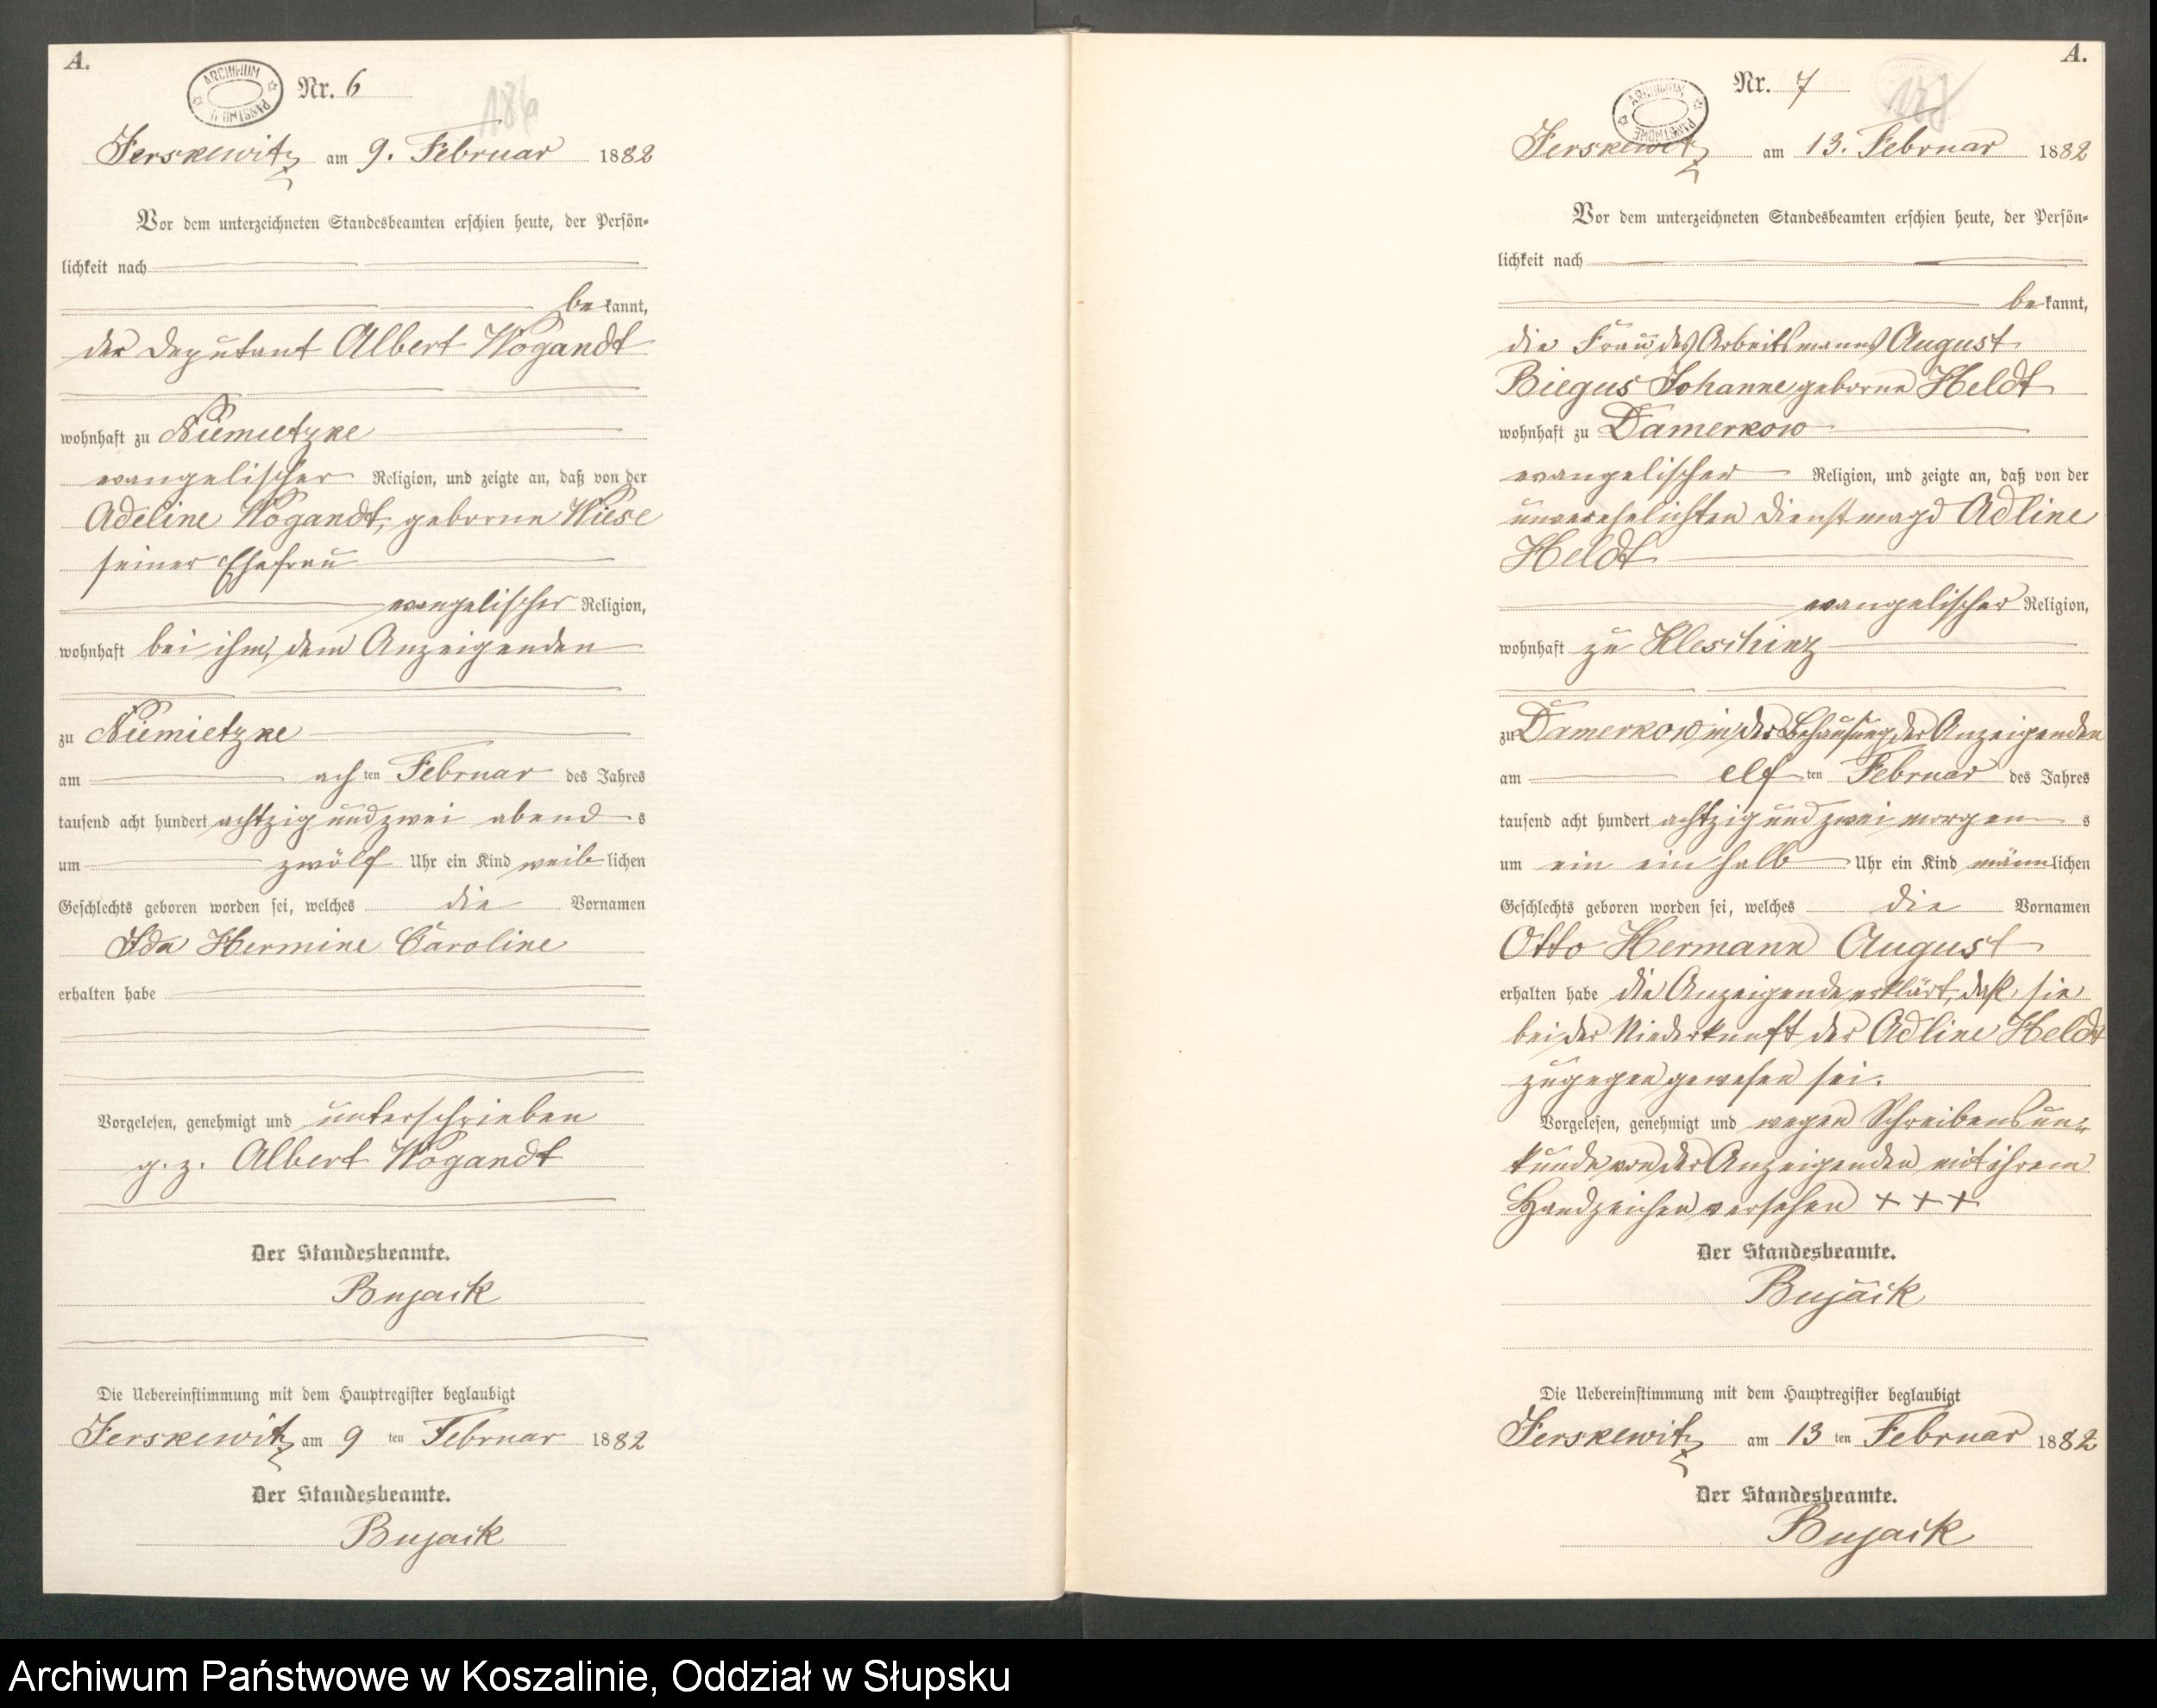 A.
ARCHIWUM PAŃSTWOWE
Nr. 6
186
Jerskewitz am 9. Februar 1882
Vor dem unterzeichneten Standesbeamten erschien heute, der Persön-
lichkeit nach
bekannt,
der Deputant Albert Wogandt
wohnhaft zu Niemietzke
evangelischer Religion, und zeigte an, daß von der
Adeline Wogandt, geborne Wiese
seiner Ehefrau
evangelischer Religion,
wohnhaft bei ihm, dem Anzeigenden
zu Niemietzke
am achten Februar des Jahres
tausend acht hundert achtzig und zwei abends
um zwölf Uhr ein Kind weiblichen
Geschlechts geboren worden sei, welches die Vornamen
Ida Hermine Caroline
erhalten habe
Vorgelesen, genehmigt und unterschrieben
g. z. Albert Wogandt
Der Standesbeamte.
Bujack
Die Uebereinstimmung mit dem Hauptregister beglaubigt
Jerskewitz am 9ten Februar 1882
Der Standesbeamte.
Bujack
A.
ARCHIWUM PAŃSTWOWE
Nr. 7
187
Jerskewitz am 13. Februar 1882
Vor dem unterzeichneten Standesbeamten erschien heute, der Persön-
lichkeit nach
bekannt,
die Frau des Arbeitsmanns August
Biegus Johanne geborne Heldt
wohnhaft zu Damerkow
evangelischer Religion, und zeigte an, daß von der
unverehelichten Dienstmagd Adline
Heldt
evangelischer Religion,
wohnhaft zu Kleschinz
zu Damerkow in der Behausung der Anzeigenden
am elften Februar des Jahres
tausend acht hundert achtzig und zwei morgens
um ein ein halb Uhr ein Kind männlichen
Geschlechts geboren worden sei, welches die Vornamen
Otto Hermann August
erhalten habe die Anzeigende erklärt, daß sie
bei der Niederkunft der Adline Heldt
zugegen gewesen sei.
Vorgelesen, genehmigt und wegen Schreibensun-
kunde von der Anzeigenden mit ihrem
Handzeichen versehen + + +
Der Standesbeamte.
Bujack
Die Uebereinstimmung mit dem Hauptregister beglaubigt
Jerskewitz am 13ten Februar 1882
Der Standesbeamte.
Bujack
Archiwum Państwowe w Koszalinie, Oddział w Słupsku